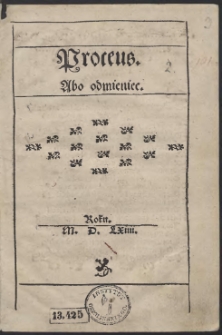 Proteus.
Abo odmieniec.
Roku.
M. D. LXiiii.
13.425